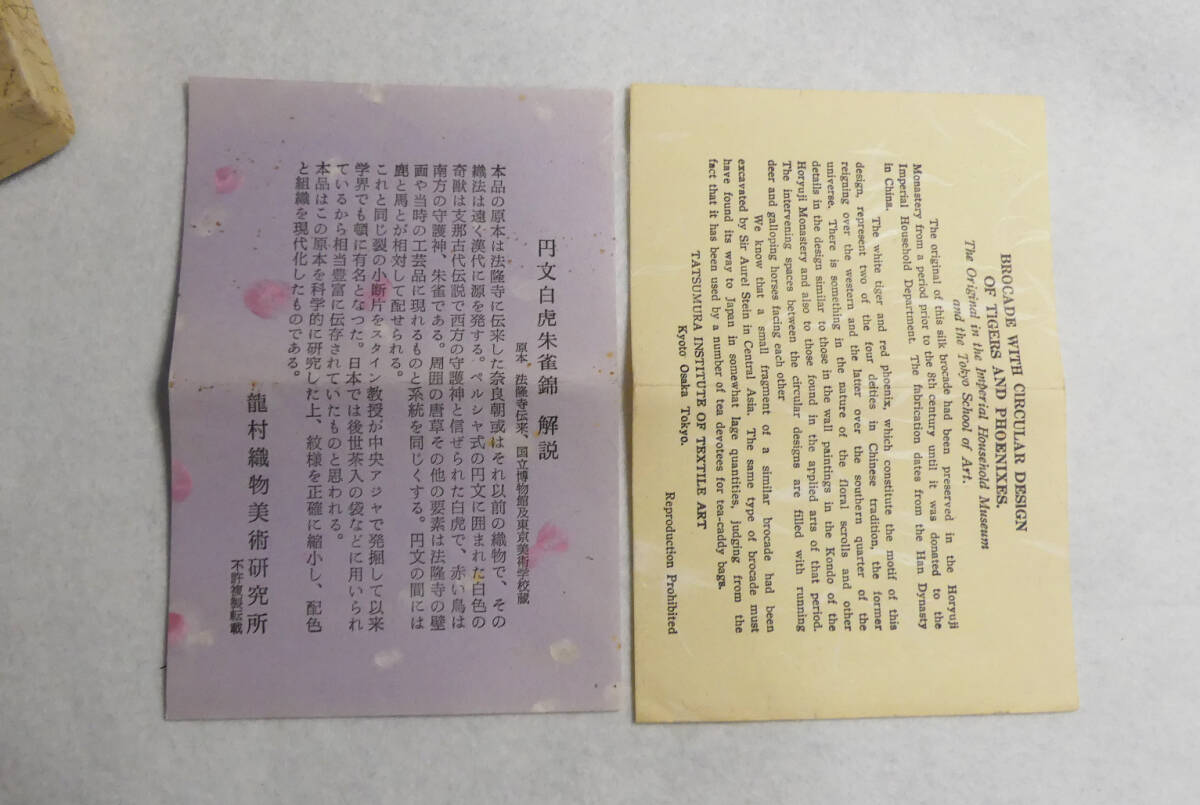 円文白虎朱雀錦 解説
原本 法隆寺伝来、国立博物館及東京美術学校蔵
本品の原本は法隆寺に伝来した奈良朝或はそれ以前の織物で、その
織法は遠く漢代に源を発する。ペルシャ式の円文に囲まれた白色の
奇獣は支那古代伝説で西方の守護神と信ぜられた白虎で、赤い鳥は
南方の守護神、朱雀である。周囲の唐草その他の要素は法隆寺の壁
画や当時の工芸品に現れるものと系統を同じくする。円文の間には
鹿と馬とが相対して配せられる。
これと同じ裂の小断片をスタイン教授が中央アジャで発掘して以来
学界でも頓に有名となつた。日本では後世茶入の袋などに用いられ
ているから相当豊富に伝存されていたものと思われる。
本品はこの原本を科学的に研究した上、紋様を正確に縮小し、配色
と組織を現代化したものである。
龍村織物美術研究所
不許複製転載
BROCADE WITH CIRCULAR DESIGN
OF TIGERS AND PHOENIXES.
The Original in the Imperial Household Museum
and the Tokyo School of Art.
The original of this silk brocade had been preserved in the Horyuji
Monastery from a period prior to the 8th century until it was donated to the
Imperial Household Department. The fabrication dates from the Han Dynasty
in China.
The white tiger and red phoenix, which constitute the motif of this
design, represent two of the four deities in Chinese tradition, the former
reigning over the western and the latter over the southern quarter of the
universe. There is something in the nature of the floral scrolls and other
details in the design similar to those in the wall paintings in the Kondo of the
Horyuji Monastery and also to those found in the applied arts of that period.
The intervening spaces between the circular designs are filled with running
deer and galloping horses facing each other
We know that a small fragment of a similar brocade had been
excavated by Sir Aurel Stein in Central Asia. The same type of brocade must
have found its way to Japan in somewhat lage quantities, judging from the
fact that it has been used by a number of tea devotees for tea-caddy bags.
TATSUMURA INSTITUTE OF TEXTILE ART
Kyoto Osaka Tokyo.
Reproduction Prohibited